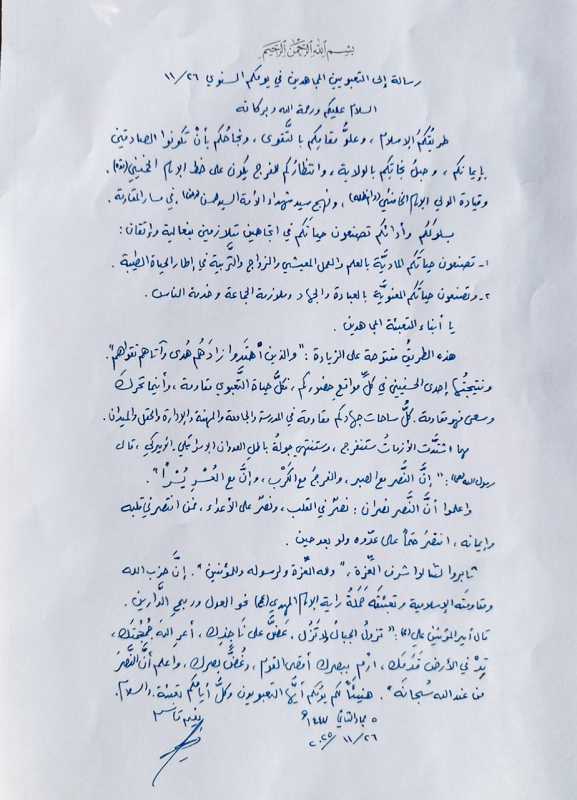 بسم الله الرحمن الرحيم
رسالة إلى التعبويين المجاهدين في يومكم السنوي ١١/٢٦
السلام عليكم ورحمة الله وبركاته
طريقُكم الإسلام، وعلوُّ مقامكم بالتَّقوى، ونجاحُكم بأنْ تكونوا الصادقين
بإيمانكم، وحبلُ نجاتِكم بالولاية، وانتظارُكم للفرج يكون على خط الإمام الخميني(قده)،
وقيادة الولي الإمام الخامنئي(دام ظله)، ونهج سيد شهداء الأمة السيد حسن(رض)، في مسار المقاومة.
بسلوككم وأدائكم تصنعون حياتكم في اتجاهين متلازمين بفعالية وإتقان:
١- تصنعون حياتَكم الماديَّة بالعلم والعمل المعيشي والزواج والتَّربية في إطار الحياة الطيبة.
٢- وتصنعون حياتَكم المعنويَّة بالعبادة والجهاد وملازمة الجماعة وخدمة الناس.
يا أبناء التعبئة المجاهدين.
هذه الطريقُ مفتوحة على الزيادة: "والذين اهْتَدَوا زادَهُم هُدى وآتاهم تقواهم".
ونتيجتُها إحدى الحسنيين في كلِّ مواقع حضوركم، فكلُّ حياة التَّعبوي مقاومة، وأينما تحرك
وسعى فهو مقاومة. كلُّ ساحات جهادكم مقاومة في المدرسة والجامعة والمهنة والإدارة والحقل والميدان.
مهما اشتدَّت الأزماتُ ستنفرج، وستنتهي جولةُ باطلِ العدوان الإسرائيلي الأميركي، قال
رسول الله(ص): "إنَّ النَّصرَ مع الصبر، والفرجَ مع الكَرْب، وإنَّ مع العُسْرِ يُسْراً".
واعلموا أنَّ النَّصرَ نصران: نصرٌ في القلب، ونصرٌ على الأعداء، فمن انتصرَ في قلبه
وإيمانه، انتصرَ حتماً على عدوّه ولو بعد حين.
ثابروا لتنالوا شرف العِزَّة، "ولله العِزَّة ولرسوله وللمؤمنين". إنَّ حزب الله
ومقاومتَه الإسلامية وتعبئتَه حَمَلَةُ راية الإمام المهدي(عج) نحو العدل وربح الدَّارين.
قال أمير المؤمنين علي(ع): "تزولُ الجبالُ ولا تَزُل، عَضَّ على نَاجِذِك، أعرِ اللهَ جُمْجُمَتَك،
تِدْ في الأرضِ قَدَمَك، ارْمِ ببصرك أقصى القوم، وغُضَّ بصرك، واعلم أنَّ النَّصرَ
من عند الله سُبحانَه". هنيئاً لكم يومكم أيُّها التعبويون وكلُّ أيامكم تعبئة. والسلام.
٥ جمادى الثاني ١٤٤٧هـ
نعيم قاسم
٢٠٢٥/١١/٢٦